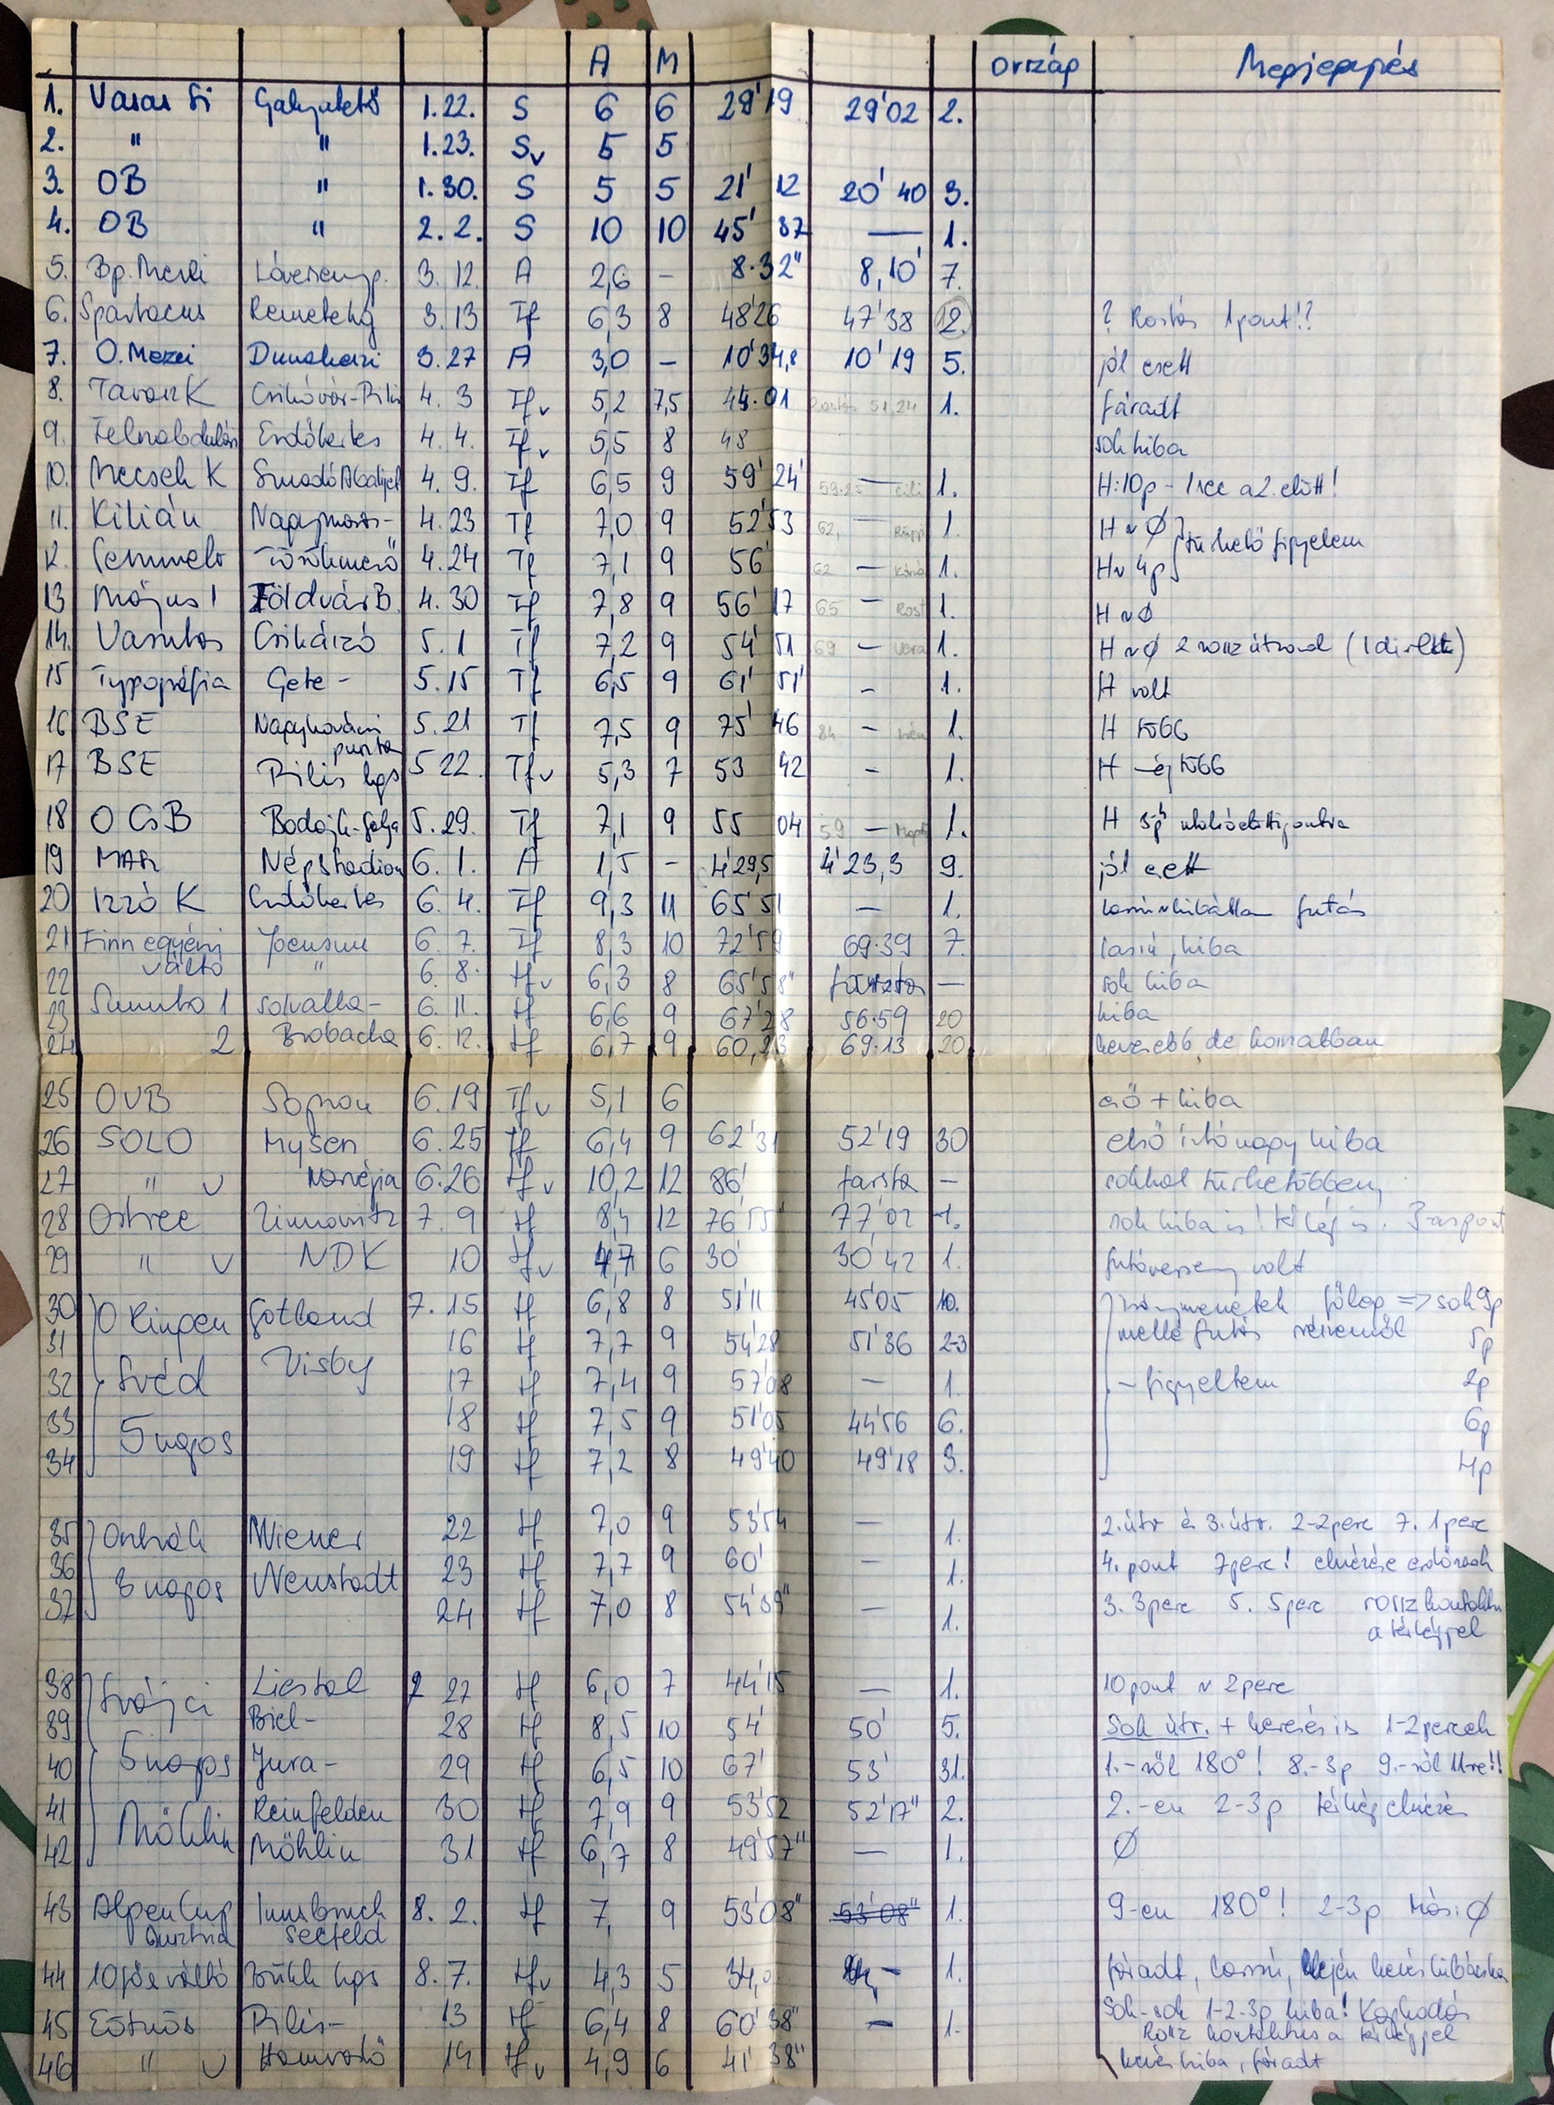 A M ország Megjegyzés
1. Vasas Si Galyatető 1.22. S 6 6 29'19 29'02 2.
2. " " 1.23. Sv 5 5
3. OB " 1.30. S 5 5 21'12 20'40 3.
4. OB " 2.2. S 10 10 45'37 — 1.
5. Bp. Mezei Lóversenyp. 3.12. A 2,6 - 8.32" 8,10' 7.
6. Spartacus Remetehg 3.13 Tf 6,3 8 48'26 47'38 2. ? Rostás 1 pont!?
7. O. Mezei Dunakeszi 3.27 A 3,0 - 10'34,8 10'19 5. jól esett
8. Tavasz K Csikóvár-Pilis 4.3 Tfv 5,2 7,5 44.01 Rostás 51,24 1. fáradt
9. Felszabadulás Erdőkertes 4.4. Tfv 5,5 8 48 sok hiba
10. Mecsek K 4.9. Tf 6,5 9 59'24' 59.25 — 1. H:10p - 1 sec a 2. előtt!
11. Kilián Nagymaros- 4.23 Tf 7,0 9 52'53 62, — 1. H ~ Ø
12. Semmelv Törökmező 4.24 Tf 7,1 9 56' 62 — 1. H ~ 4p } tűrhető figyelem
13 Május 1 Földvár B. 4.30 Tf 7,8 9 56'17 65 — Rost 1. H ~ Ø
14. Vasutas Csikóizó 5.1 Tf 7,2 9 54'51 69 — Vera 1. H ~ Ø 2 rossz útvonal (1 direkt)
15 Typográfia Gete - 5.15 Tf 6,5 9 61'51' - 1. H volt
16 BSE Nagykovácsi puszta 5.21 Tf 7,5 9 75'46 84 - 1. H több
17 BSE Pilis hgs 5.22. Tfv 5,3 7 53 42 - 1. H - ég több
18 O CsB Bodajk-Gaja 5.29. Tf 7,1 9 55 04 59 — 1. H 5p
19 MAR Népstadion 6.1. A 1,5 - 4'29,5 4'23,3 9. jól esett
20 Izzó K Erdőkertes 6.4. Tf 9,3 11 65'51 — 1. lassú hibátlan futás
21 Finn egyéni Joensuu 6.7. Tf 8,3 10 72'59 69.39 7. lassú, hiba
22 váltó " 6.8. Tfv 6,3 8 65'58" — sok hiba
23 Sunnto 1 Solvalla- 6.11. Tf 6,6 9 67'28 56.59 20 hiba
24 2 Brobacka 6.12. Tf 6,7 9 60,23 69.13 20 kevesebb, de komatban
25 OVB Sopron 6.19 Tfv 5,1 6 eső + hiba
26 SOLO Mysen 6.25 Tf 6,4 9 62'31 52'19 30 első öt ó nagy hiba
27 " v Norvégia 6.26 Tfv 10,2 12 86' farsta — sokkal tűrhetőbben
28 Ostsee Zinnowitz 7.9 Tf 8,4 12 76'55" 77'02 1. sok hiba is!
29 " v NDK 10 Tfv 4,7 6 30' 30'42 1. futóverseny volt
30 O Ringen Gotland 7.15 Tf 6,8 8 51'11 45'05 10. => sok 9p
31 16 Tf 7,7 9 54'28 51'36 2-3 mellé futás 5p
32 Svéd Visby 17 Tf 7,4 9 57'08 — 1. - figyeltem 2p
33 5 napos 18 Tf 7,5 9 51'05 44'56 6. 6p
34 19 Tf 7,2 8 49'40 49'18 3. 4p
35 Osztrák Wiener 22 Tf 7,0 9 53'54 — 1. 2. útv és 3. útv. 2-2 perc 7. 1 perc
36 3 napos Neustadt 23 Tf 7,7 9 60' — 1. 4. pont 7 perc!
37 24 Tf 7,0 8 54'39" — 1. 3. 3 perc 5. 5 perc rossz kontaktus
a térképpel
38 Svájci Liestal 7 27 Tf 6,0 7 44'15 — 1. 10 pont ~ 2 perc
39 Biel- 28 Tf 8,5 10 54' 50' 5. Sok útv. + keresés is 1-2 percek
40 5 napos Jura- 29 Tf 6,5 10 67' 53' 31. 1.-ről 180°! 8.-3p 9.-ről 11-re!!
41 Reinfelden 30 Tf 7,9 9 53'52 52'17" 2. 2.-en 2-3p térkép elnézés
42 Möhlin Möhlin 31 Tf 6,7 8 49'57" — 1. Ø
43 Alpen Cup Innsbruck 8.2. Tf 7, 9 53'08" 53'08" 1. 9-en 180°! 2-3p Más: Ø
Ausztria Seefeld
44 10 fős váltó Bükk hgs 8.7. Tfv 4,3 5 34, - 1. fáradt, lassú, elején kevés hibácska
45 Eötvös Pilis- 13 Tf 6,4 8 60'38" - 1. Sok-sok 1-2-3p hiba! Kapkodás
Rossz kontaktus a térképpel
46 " v Homvodó 14 Tfv 4,9 6 41'38" kevés hiba, fáradt